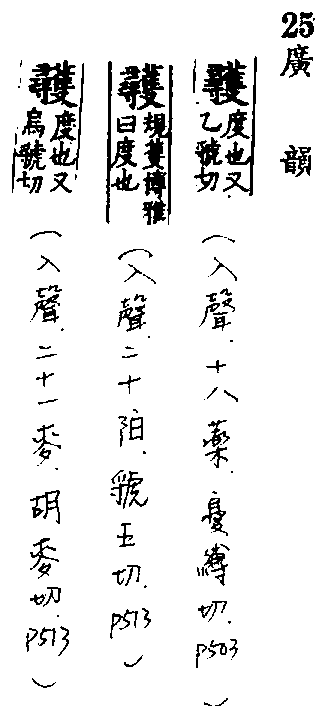 25
廣韻
度也又乙虢切
(入聲.十八藥.憂縛切.P503)
規蒦博雅曰度也
(入聲.二十陌.虢五切.P513)
度也又烏虢切
(入聲.二十一麥.胡麥切.P513)